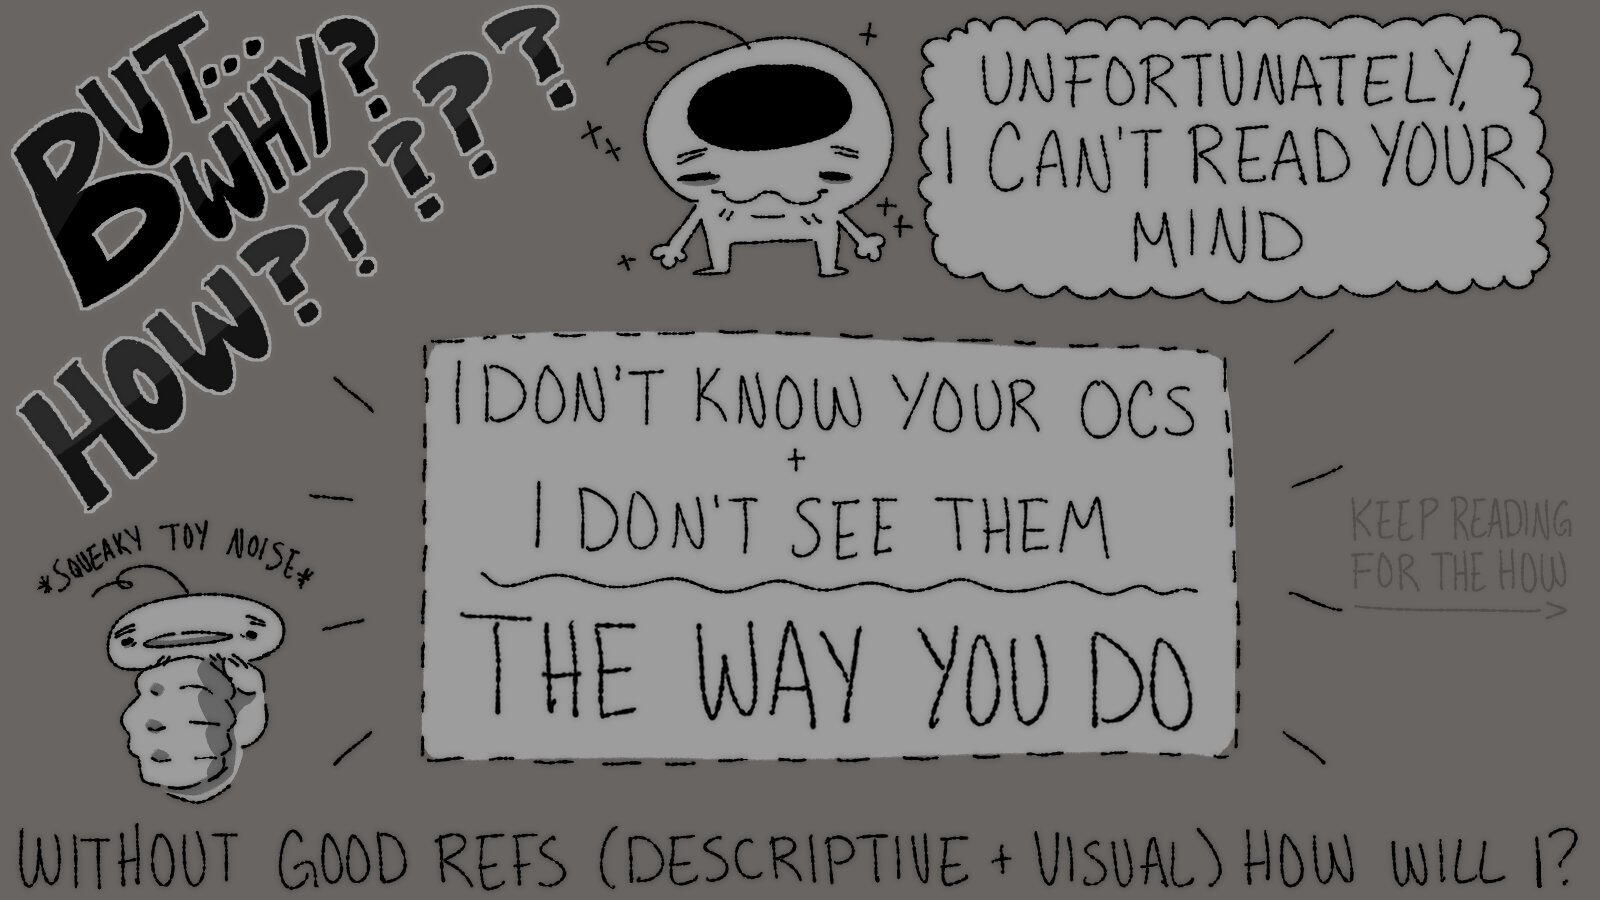 BUT...
BWHY?
HOW??????
UNFORTUNATELY,
I CAN'T READ YOUR
MIND
I DON'T KNOW YOUR OCS
+
I DON'T SEE THEM
THE WAY YOU DO
KEEP READING
FOR THE HOW
*SQUEAKY TOY NOISE*
WITHOUT GOOD REFS (DESCRIPTIVE + VISUAL) HOW WILL I?